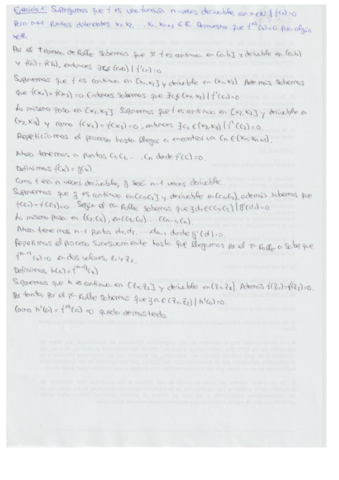 Ejercicio 1: Supongamos que f es una función n veces derivable en x∈ℝ / f(x)=0
para n+1 puntos diferentes x₁, x₂, ... xₙ, xₙ₊₁ ∈ℝ. Demuestra que fⁿ(x)=0 para algún
Por el Teorema de Rolle sabemos que si f es continua en [a,b] y derivable en (a,b)
y f(a)=f(b), entonces ∃c∈(a,b) / f'(c)=0
Suponemos que f es continua en [x₁,x₂] y derivable en (x₁,x₂). Además sabemos
que f(x₁)=f(x₂)=0 Entonces sabemos que ∃c₁∈(x₁,x₂) / f'(c₁)=0
Lo mismo pasa en [x₂,x₃]. Suponemos que f es continua en [x₂,x₃] y derivable en
(x₂,x₃) y como f(x₂)=f(x₃)=0, entonces ∃c₂∈(x₂,x₃) / f'(c₂)=0.
Repetiríamos el proceso hasta llegar a encontrar un cₙ∈(xₙ,xₙ₊₁).
Ahora tenemos n puntos c₁,c₂,...cₙ donde f'(c)=0.
Definimos f'(x)=g(x)
Como f es n veces derivable, g será n-1 veces derivable.
Suponemos que g es continua en [c₁,c₂] y derivable en (c₁,c₂), además sabemos que
Según el Rolle sabemos que ∃d₁∈(c₁,c₂) / g'(d₁)=0.
Lo mismo pasa en
Ahora tenemos n-1 puntos d₁,d₂,... dₙ₋₁ donde g'(d)=0.
Repetimos el proceso sucesivamente hasta que lleguemos por el Rolle a saber que
fⁿ⁻¹(x)=0 en dos valores, z₁ y z₂.
Definimos h(x)=fⁿ⁻¹(x)
Suponemos que h es continua en [z₁,z₂] y derivable en (z₁,z₂). Además
Por tanto por el Rolle sabemos que ∃a∈(z₁,z₂) / h'(a)=0.
Como h'(a)=fⁿ(a) ⇒ queda demostrado.